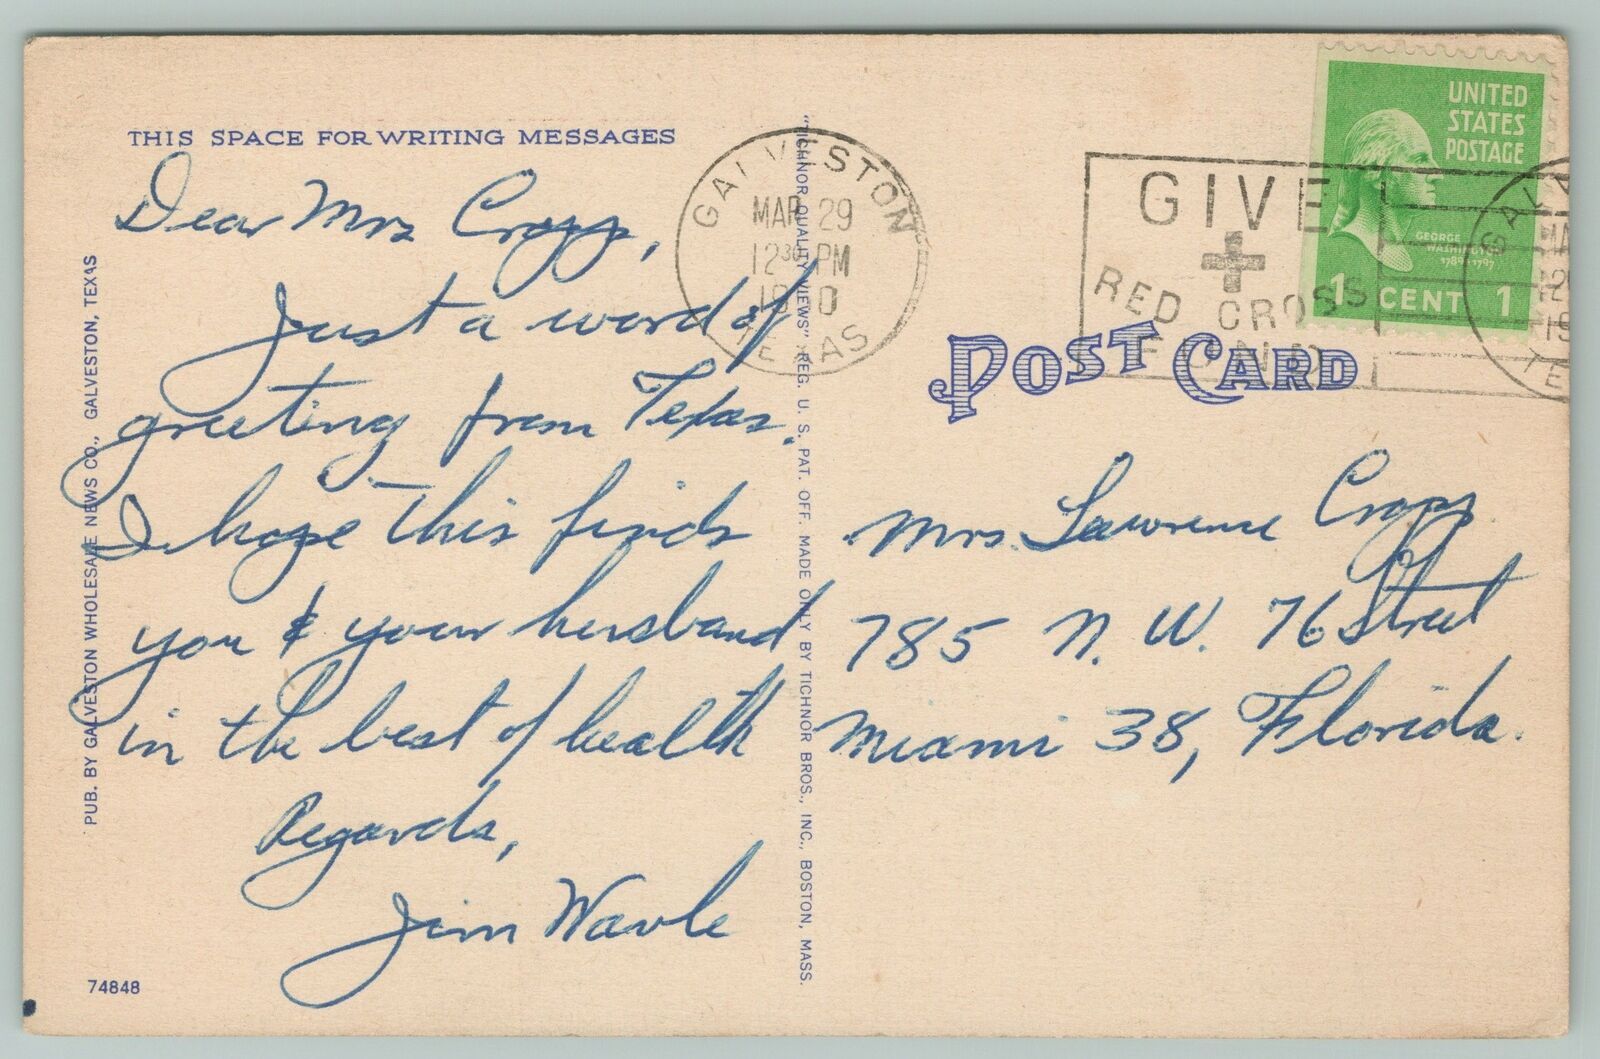 THIS SPACE FOR WRITING MESSAGES
Dear Mrs Cropp,
Just a word of
greeting from Texas.
I hope this finds
you & your husband
in the best of health
Regards,
Jim
74848
PUB. BY GALVESTON WHOLESALE NEWS CO., GALVESTON, TEXAS
"TICHNOR QUALITY VIEWS" REG. U. S. PAT. OFF. MADE ONLY BY TICHNOR BROS., INC., BOSTON, MASS.
GALVESTON
MAR 29
12 30 PM
TEXAS
GIVE
RED CROSS
FUND
UNITED
STATES
POSTAGE
GEORGE
WASHINGTON
1789-1797
1 CENT 1
POST CARD
Mrs. Lawrence Cropp
785 N. W. 76 Street
Miami 38, Florida.